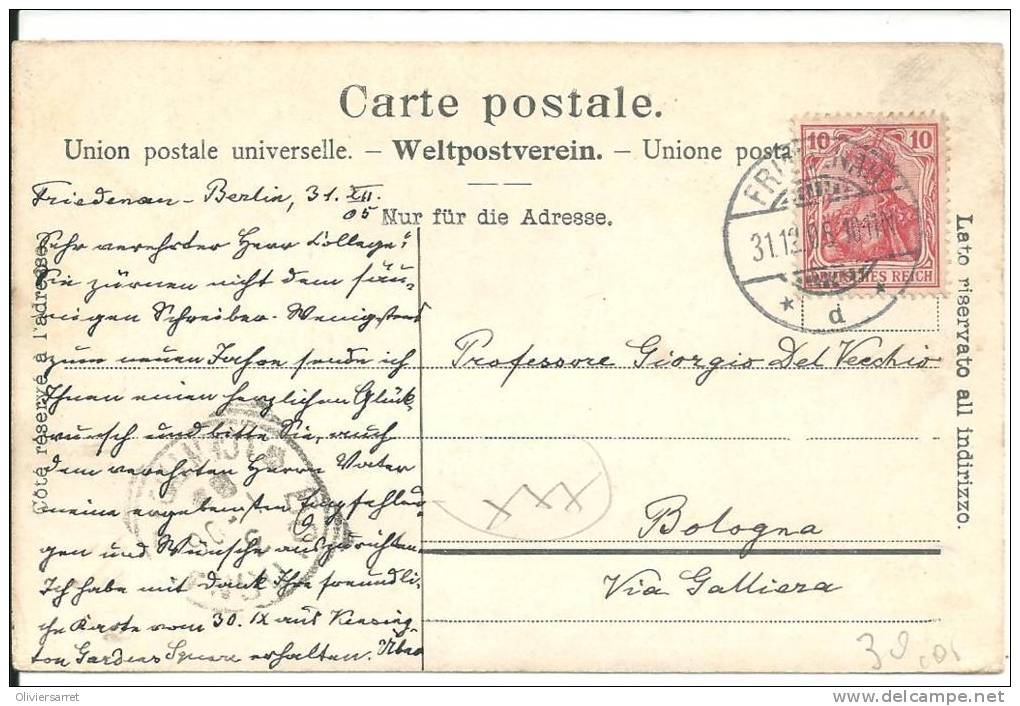 Carte postale.
Union postale universelle. – Weltpostverein. – Unione posta
Nur für die Adresse.
Côté réservé à l'adresse.
Lato riservato all indirizzo.
10 10
REICH
31.12.05. 10-11
d
Friedenau - Berlin, 31. XII.
05
Sehr verehrter Herr College!
Sie zürnen nicht dem säu-
migen Schreiber. Wenigstens
zum neuen Jahre sende ich
Ihnen einen herzlichen Glück-
wunsch und bitte Sie, auch
dem verehrten Herrn Vater
meine ergebensten Empfehlun-
gen und Wünsche auszurichten.
Ich habe mit Dank Ihre freundli-
che Karte vom 30. IX aus Kensing-
ton Gardens Square erhalten.
Professore Giorgio Del Vecchio
Bologna
Via Galliera
XXX
Oliviersarret
http://www.delcampe.net